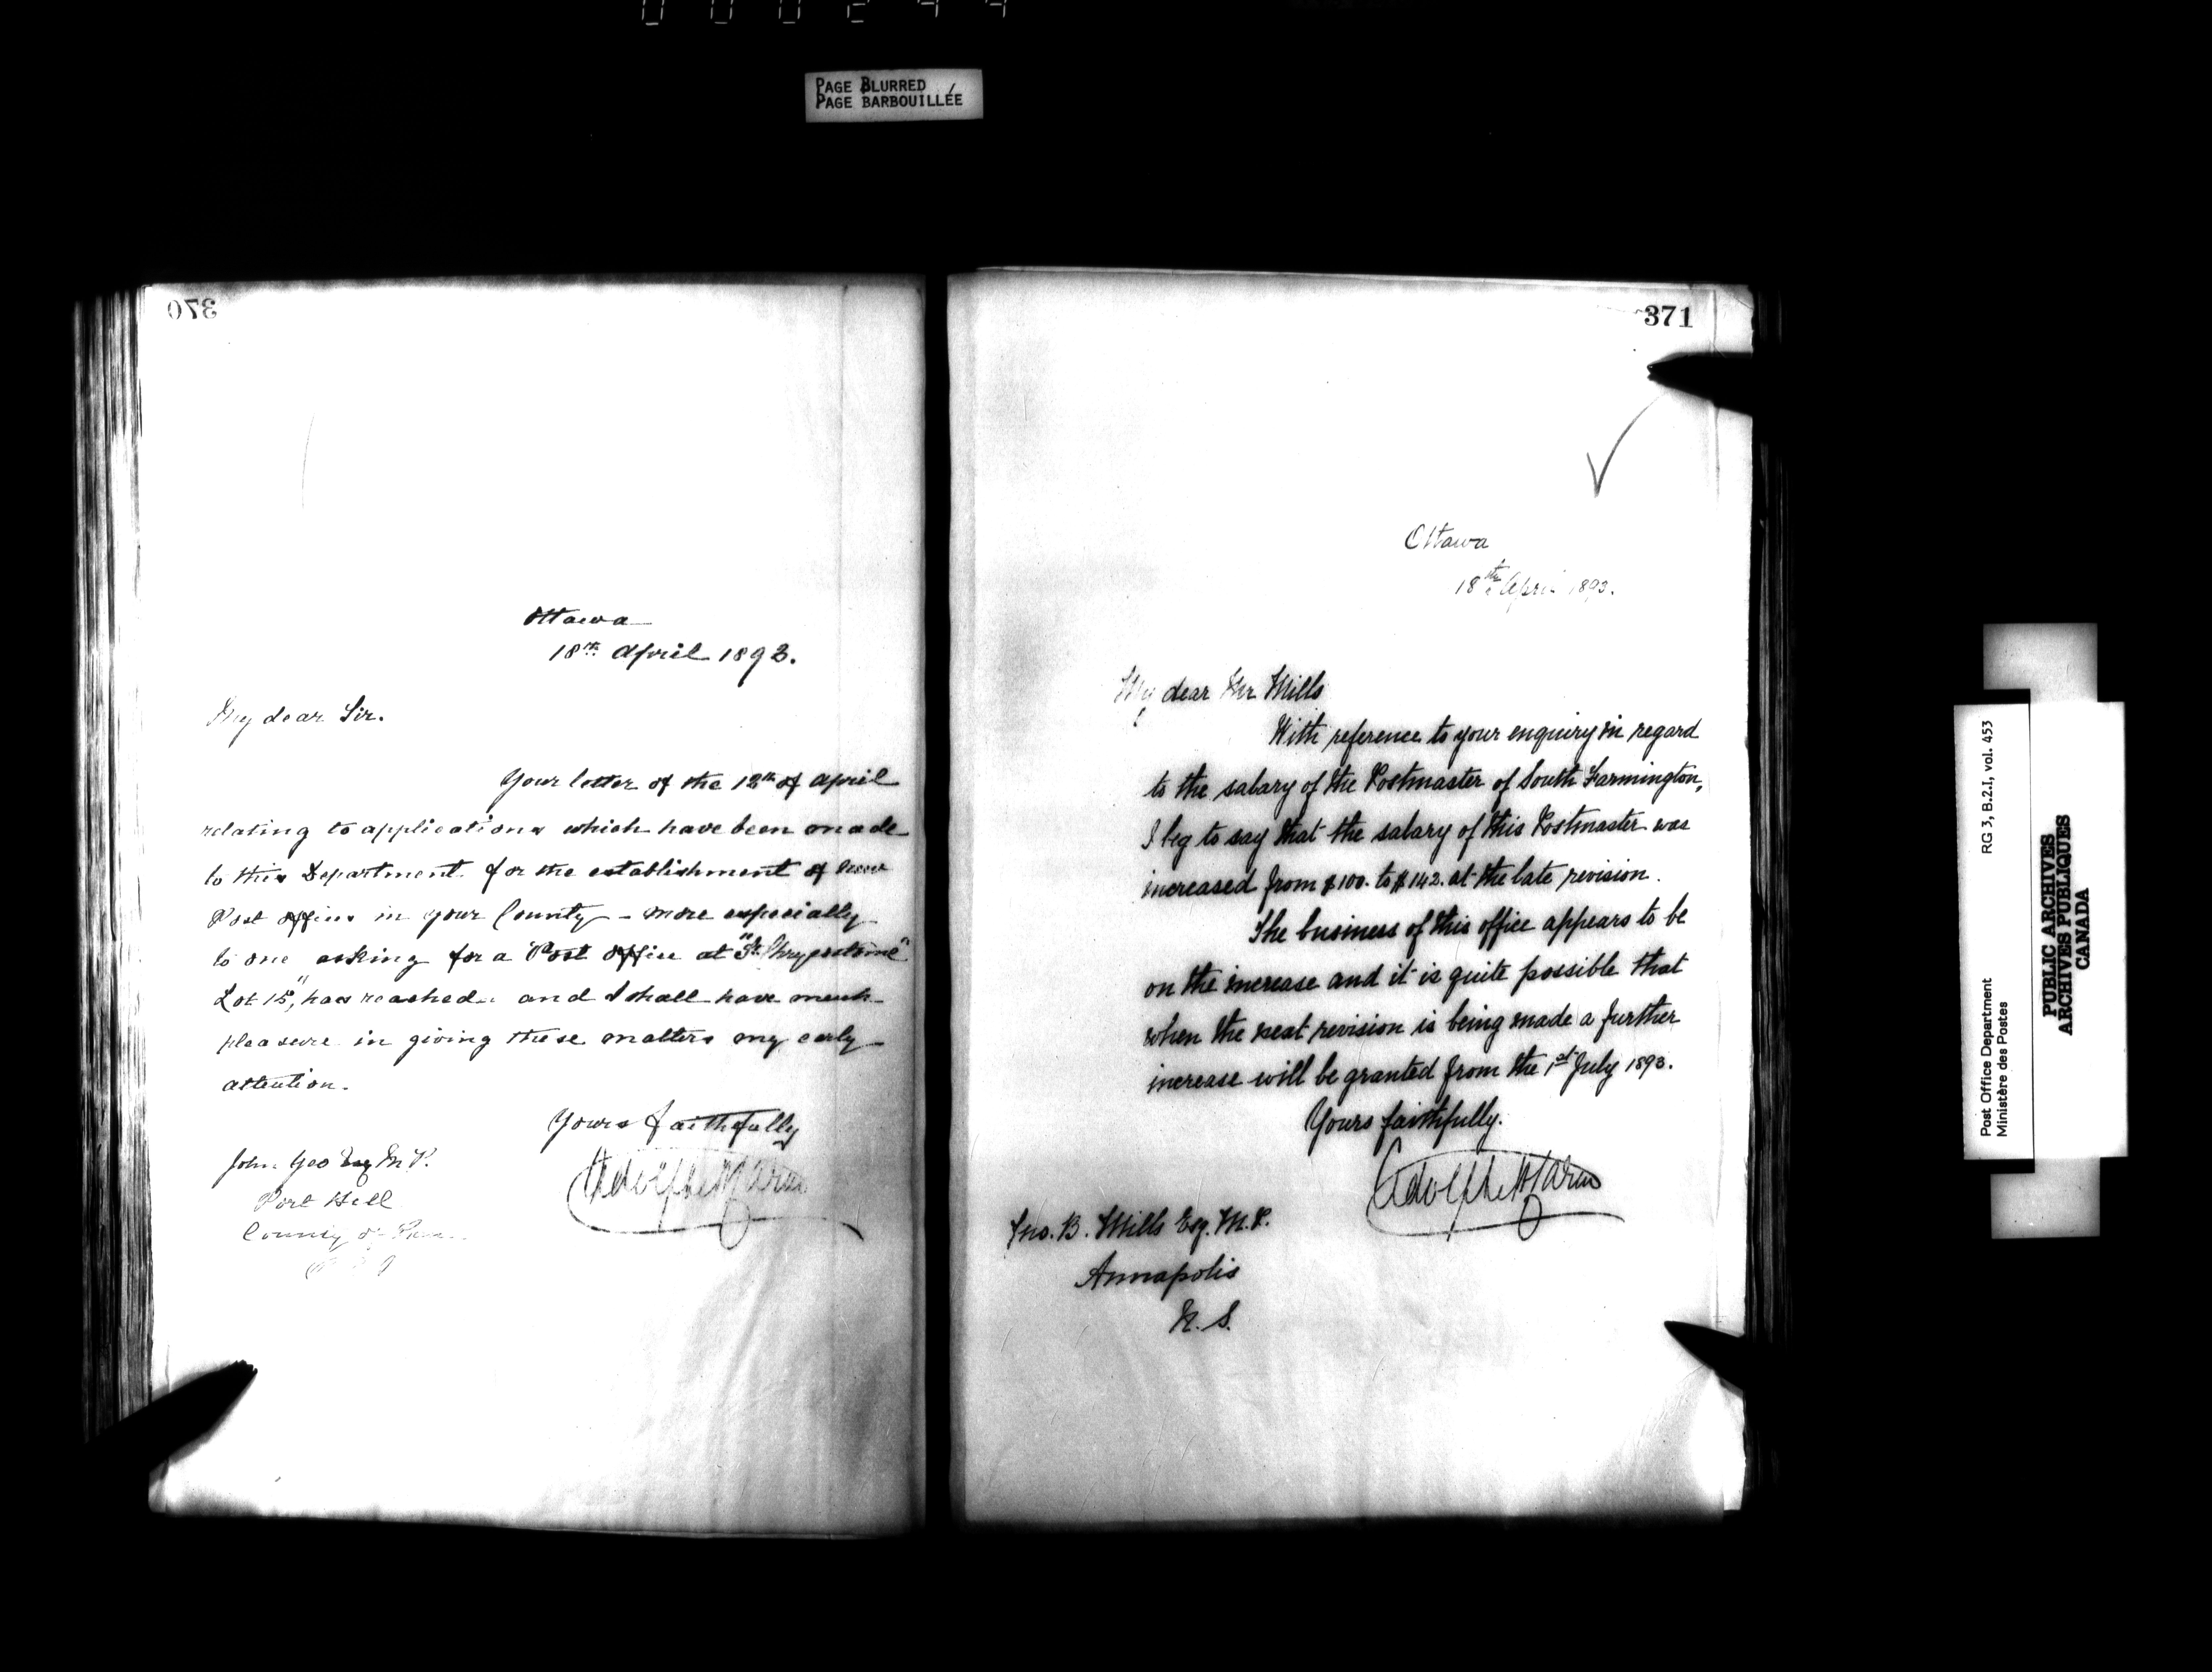 PAGE BLURRED
PAGE BARBOUILLÉE
370
Ottawa
18th April 1893.
My dear Sir.
Your letter of the 12th of April
relating to applications which have been made
to this Department for the establishment of new
Post offices in your County - more especially
to one asking for a Post office at "St. Chrysostome"
Lot 15", has reached and I shall have much
pleasure in giving these matters my early
attention.
Yours faithfully
Adolphe P Caron
John Yeo Esq M.P.
Port Hill
County of
371
Ottawa
18th April 1893.
My dear Mr Mills
With reference to your enquiry in regard
to the salary of the Postmaster of South Farmington,
I beg to say that the salary of this Postmaster was
increased from $100. to $142. at the late revision.
The business of this office appears to be
on the increase and it is quite possible that
when the next revision is being made a further
increase will be granted from the 1st July 1893.
Yours faithfully.
Adolphe P Caron
Jno. B. Mills Esq. M.P.
Annapolis
N.S.
Post Office Department RG 3, B.2.1, vol. 453
Ministère des Postes
PUBLIC ARCHIVES
ARCHIVES PUBLIQUES
CANADA